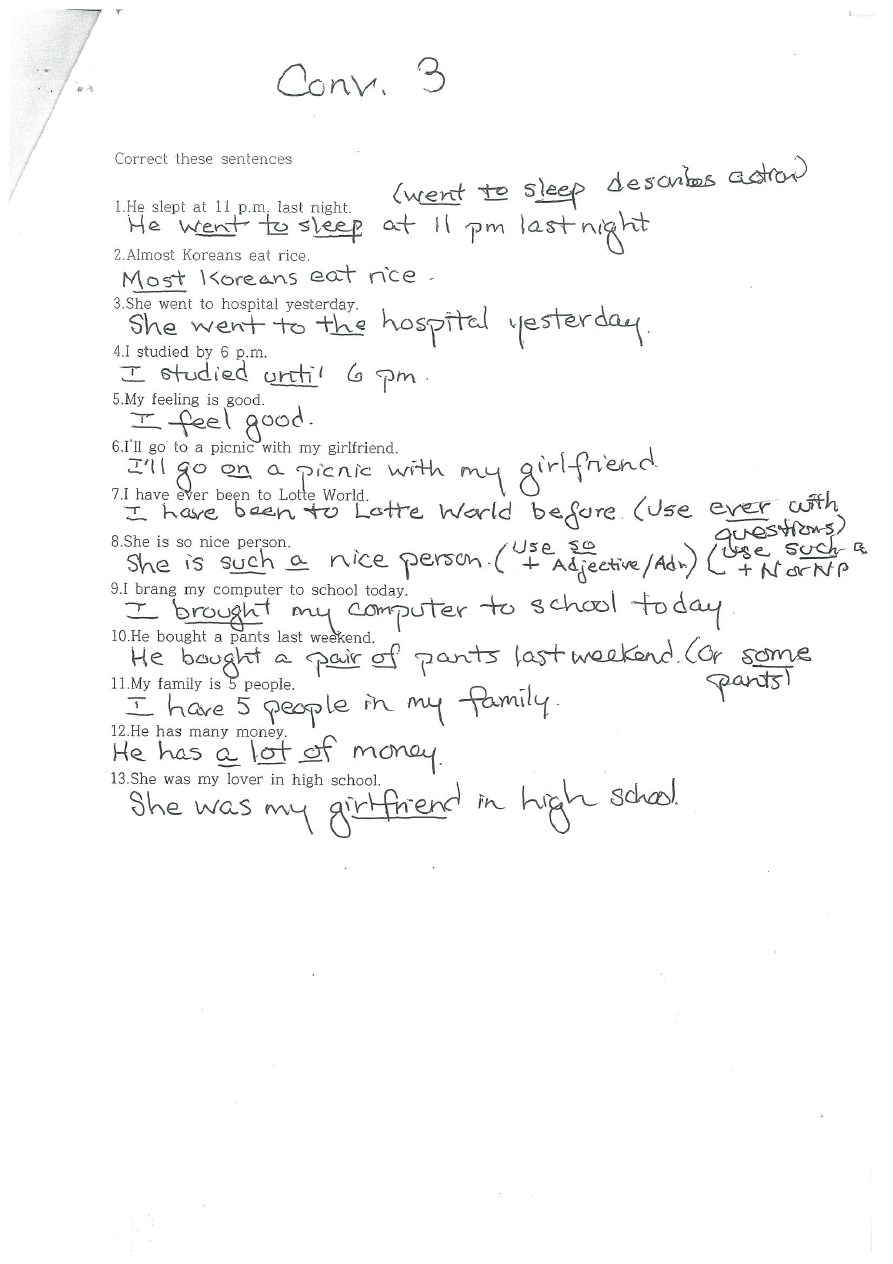 Conv. 3
Correct these sentences
(went to sleep describes action)
1.He slept at 11 p.m. last night.
He went to sleep at 11 pm last night
2.Almost Koreans eat rice.
Most Koreans eat rice.
3.She went to hospital yesterday.
She went to the hospital yesterday.
4.I studied by 6 p.m.
I studied until 6 pm.
5.My feeling is good.
I feel good.
6.I'll go to a picnic with my girlfriend.
I'll go on a picnic with my girlfriend.
7.I have ever been to Lotte World.
I have been to Lotte World before. (Use ever with
questions)
8.She is so nice person.
She is such a nice person. (Use so + Adjective/Adv) (Use such a + N or NP
9.I brang my computer to school today.
I brought my computer to school today.
10.He bought a pants last weekend.
He bought a pair of pants last weekend. (Or some
pants)
11.My family is 5 people.
I have 5 people in my family.
12.He has many money.
He has a lot of money.
13.She was my lover in high school.
She was my girlfriend in high school.